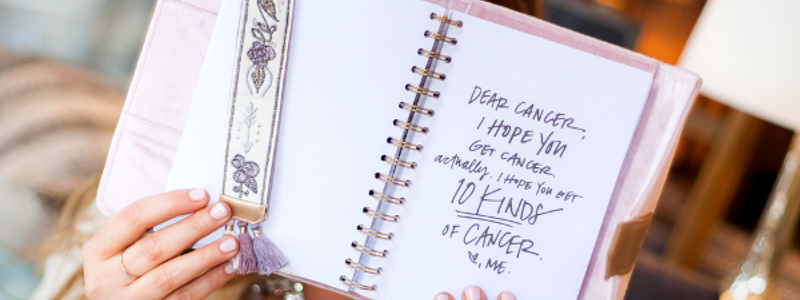 DEAR CANCER,
I HOPE YOU
GET CANCER.
actually. I HOPE YOU GET
10 KINDS
OF CANCER.
♡, ME.